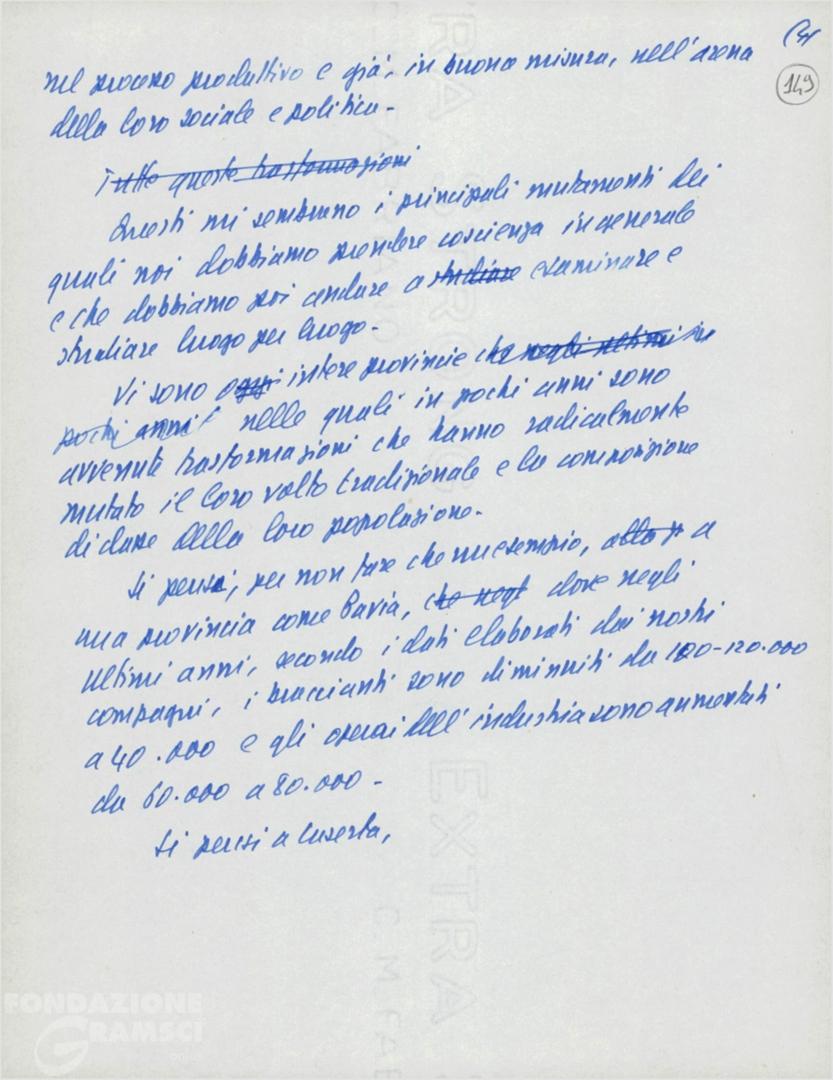 149
nel processo produttivo e già, in buona misura, nell'arena
della loro sociale e politica -
Tutte queste trasformazioni
Questi mi sembrano i principali mutamenti dei
quali noi dobbiamo prendere coscienza in generale
e che dobbiamo poi andare a studiare esaminare e
studiare luogo per luogo -
Vi sono oggi intere provincie che negli ultimi in
pochi anni nelle quali in pochi anni sono
avvenute trasformazioni che hanno radicalmente
mutato il loro volto tradizionale e la composizione
di classe della loro popolazione -
Si pensi, per non fare che un esempio, a
una provincia come Pavia, che negl dove negli
ultimi anni, secondo i dati elaborati dai nostri
compagni, i braccianti sono diminuiti da 100-120.000
a 40.000 e gli operai dell'industria sono aumentati
da 60.000 a 80.000 -
Si pensi a Caserta,
EXTRA
FONDAZIONE
GRAMSCI